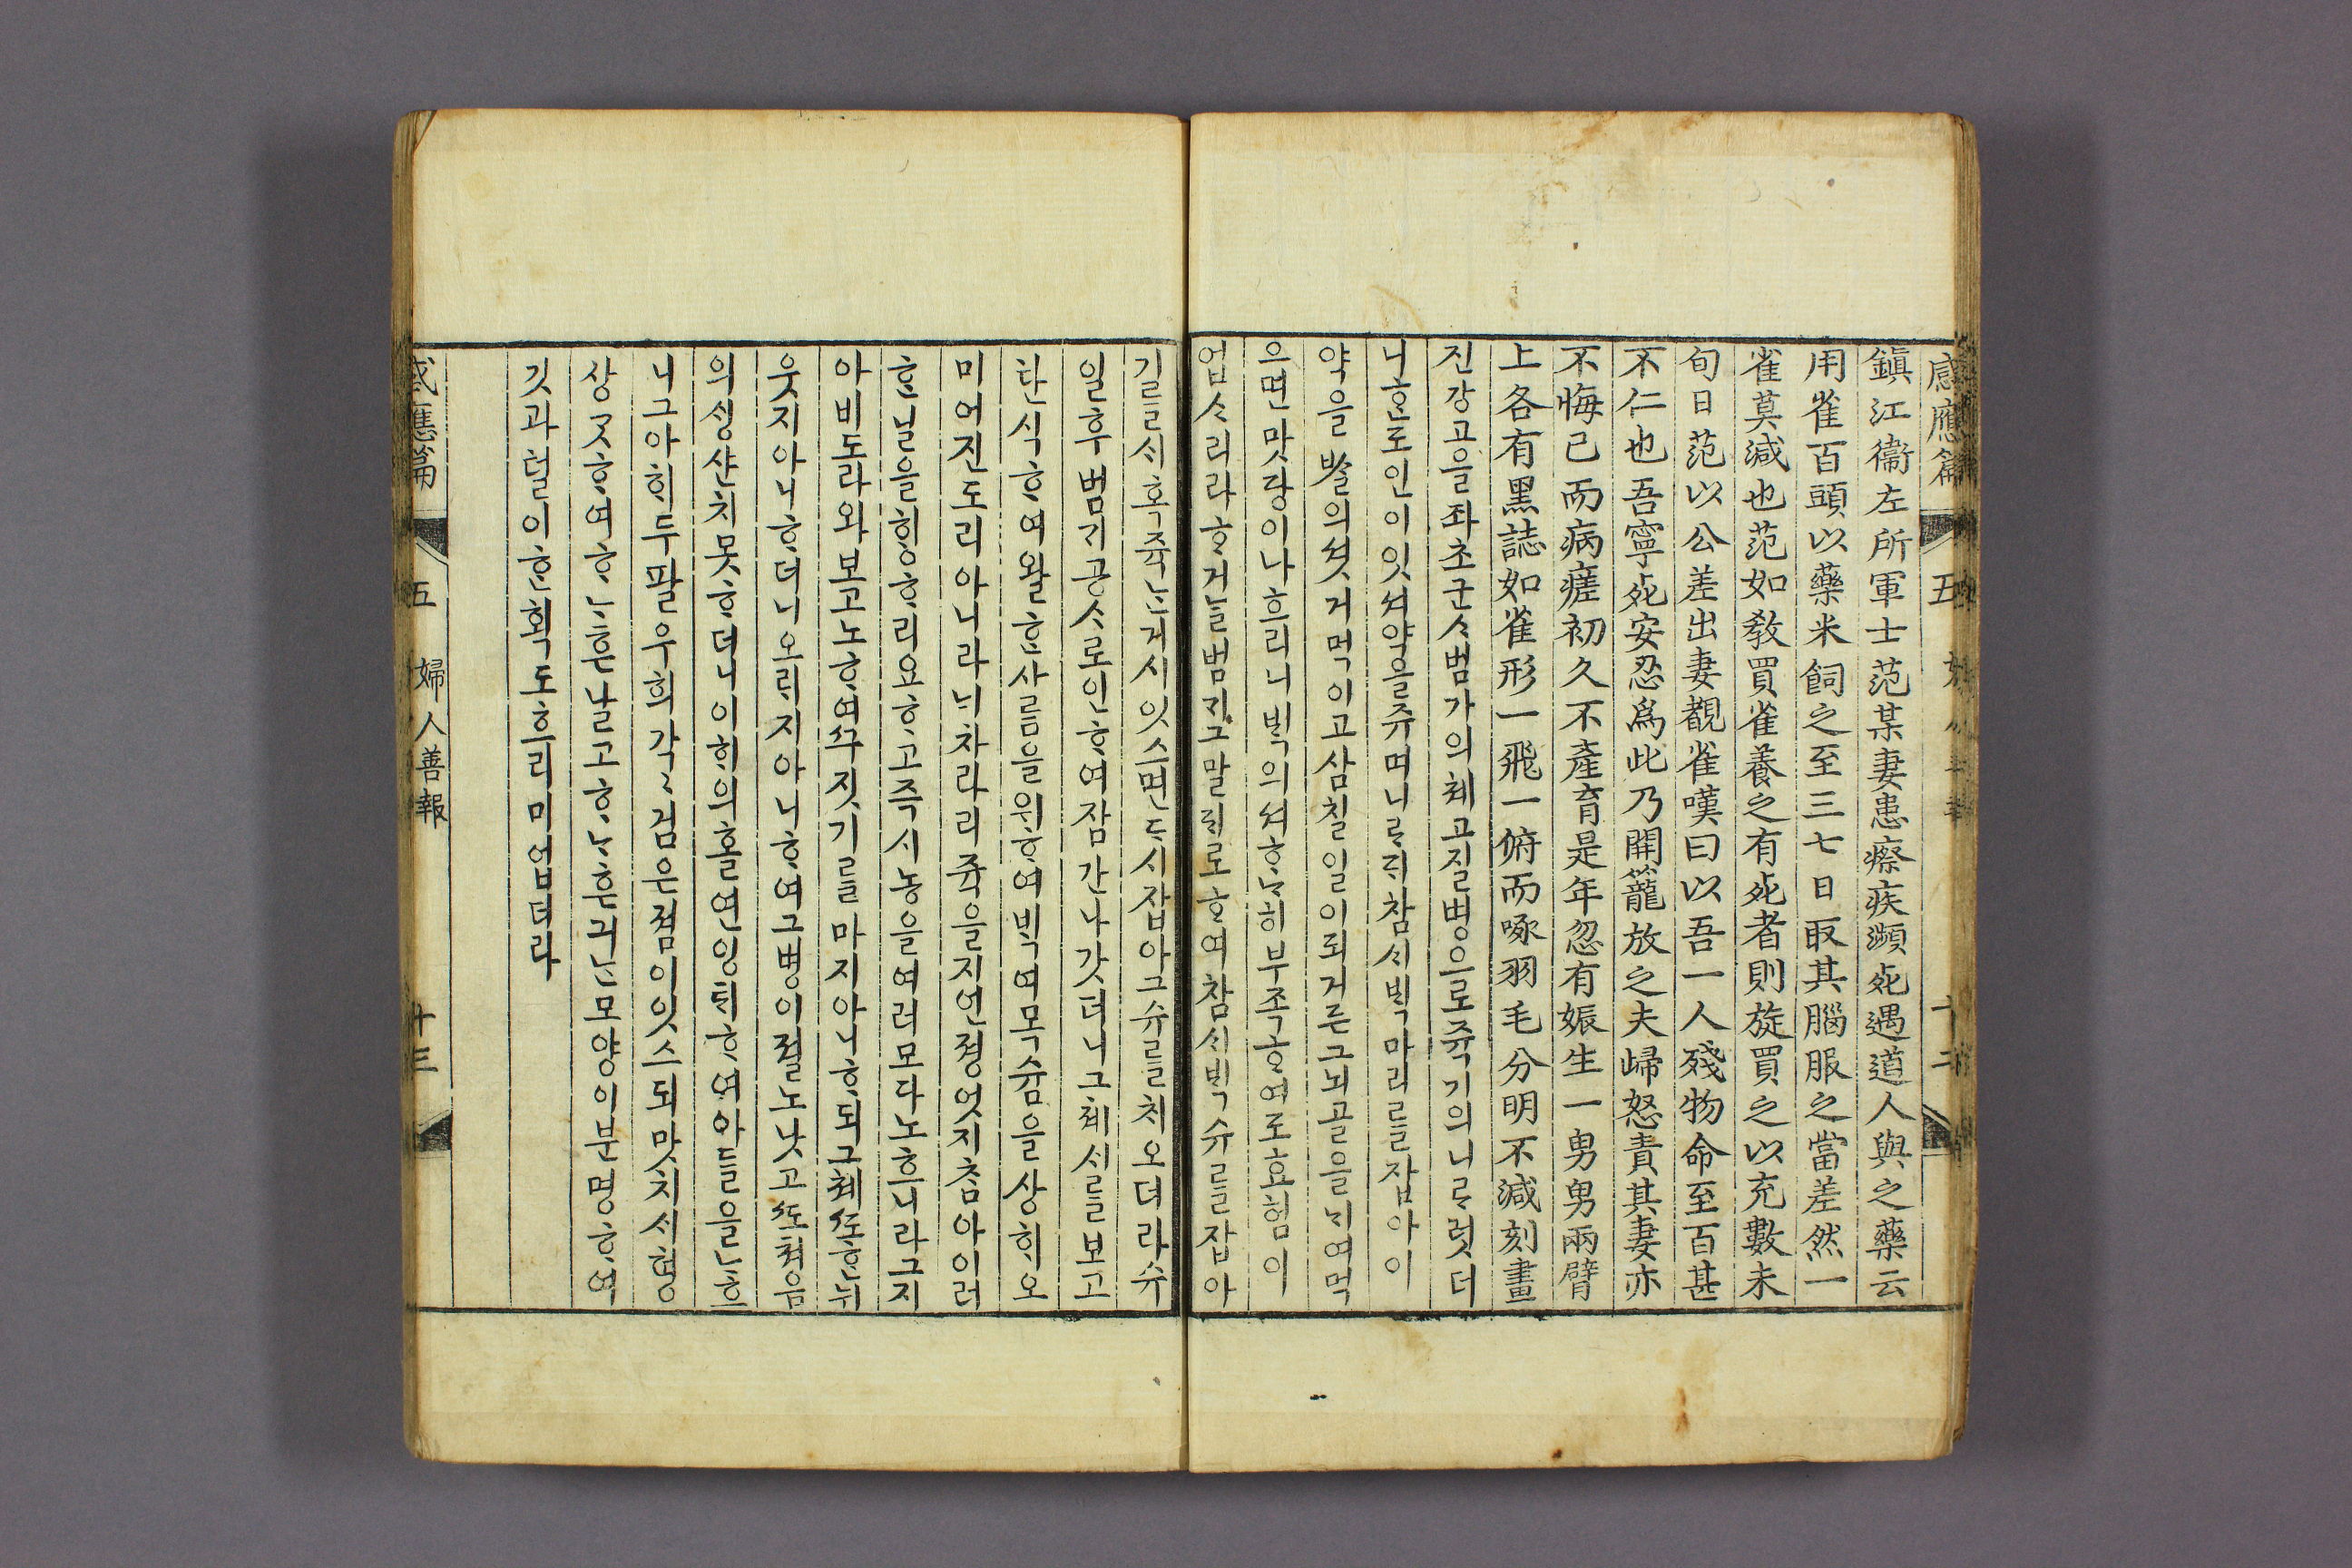 感應篇 五
鎭江衞左所軍士范某妻患瘵疾瀕死遇道人與之藥云
用雀百頭以藥米飼之至三七日取其腦服之當差然一
雀莫減也范如敎買雀養之有死者則旋買之以充數未
旬日范以公差出妻覩雀嘆曰以吾一人殘物命至百甚
不仁也吾寧死安忍爲此乃開籠放之夫歸怒責其妻亦
不悔已而病瘥初久不產育是年忽有娠生一男男兩臂
上各有黑誌如雀形一飛一俯而啄羽毛分明不減刻畫
진강고을좌초군ᄉᆞ범가의쳬고질병으로쥭기의니르럿더
니ᄒᆞᆫ도인이잇셔약을쥬며니ᄅᆞ되참ᄉᆡᄇᆡᆨ마리를잡아이
약을ᄡᆞᆯ의셧거먹이고삼칠일이되거든그뇌골을ᄂᆡ여먹
으면맛당이나흐리니ᄇᆡᆨ의셔ᄒᆞᄂᆞ히부죡ᄒᆞ여도효험이
업ᄉᆞ리라ᄒᆞ거늘범ᄀᆡ그말ᄃᆡ로ᄒᆞ여참ᄉᆡᄇᆡᆨ슈를잡아
기를ᄉᆡ혹쥭는게시잇스면ᄯᅩ시잡아그슈를ᄎᆡ오더라슈
일후범ᄀᆡ공ᄉᆞ로인ᄒᆞ여잠간나갓더니그쳬ᄉᆡ를보고
탄식ᄒᆞ여왈ᄒᆞᆫ사름을위ᄒᆞ여ᄇᆡᆨ여목슘을상ᄒᆡ오
미어진도리아니라ᄂᆡ차라리쥭을지언졍엇지ᄎᆞᆷ아이러
ᄒᆞᆫ닐을ᄒᆡᆼᄒᆞ리요ᄒᆞ고즉시농을여러모다노흐니라그지
아비도라와보고노ᄒᆞ여ᄭᅮ짓기를마지아니ᄒᆞ되그쳬ᄯᅩᄒᆞᆫ뉘
웃지아니ᄒᆞ더니오ᄅᆡ지아니ᄒᆞ여그병이졀노낫고ᄯᅩ쳐음
의ᄉᆡᆼ산치못ᄒᆞ더니이ᄒᆡ의홀연잉ᄐᆡᄒᆞ여아들을ᄂᆞ흐
니그아ᄒᆡ두팔우희각〻검은졈이잇스되맛치ᄉᆡ형
상ᄀᆞᆺᄒᆞ여ᄒᆞᄂᆞ흔날고ᄒᆞᄂᆞ흔긔는모양이분명ᄒᆞ여
깃과털이ᄒᆞᆫ획도흐리미업더라
感應篇 五 婦人善報 十三